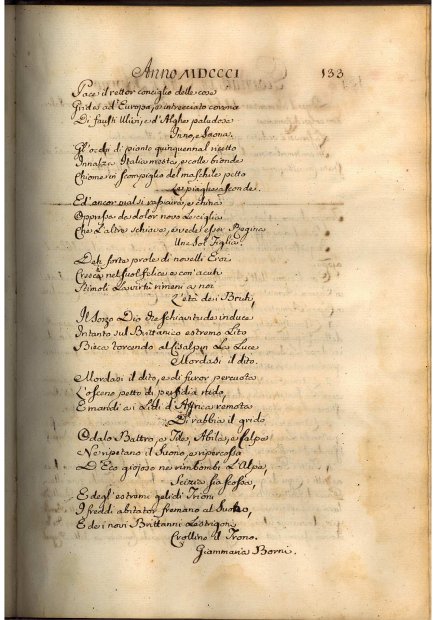 Anno MDCCCI 133
Pace il rettor consiglio delle cose
Grida ad Europa, e intrecciato corona
Di fausti Ulivi, e d'Alghe paludose
Inno, e Saona.
Gl'occhi di pianto quinquennal ricetto
Innalza Italia mesta, e colle bionde
Chiome in scompiglio del maschile petto
Le piaghe asconde.
Ed ancor mal si rassicura, e china
Oppressa da dolor novo le ciglia
Che l'altre schiave, e vede esser Regina
Una sol Figlia.
Deh forte prole di novelli Eroi
Cresca nel suol felice, e con acuti
Stimoli la virtù rimeni a noi
L'età dei Bruti,
Il sozzo Dio che schiavitude induce
Intanto sul Brittanico estremo Lito
Bieca torcendo al Cisalpin la Luce
Mordasi il dito.
Mordasi il dito, e di furor percuota
L'osceno petto di perfidia nido,
E mandi ai Lidi d'Affrica remota
Di rabbia il grido
Odalo Battro, e Ide, Abila, e Calpe
Ne ripetano il suono, e ripercossa
D'Eco giojoso ne rimbombi l'Alpe,
Scizia sia scossa,
E degl'estremi gelidi Trioni
I freddi abitator fremano al Suono,
E dei novi Brittanni Lestrigoni
Crollino il Trono.
Giammaria Borni.